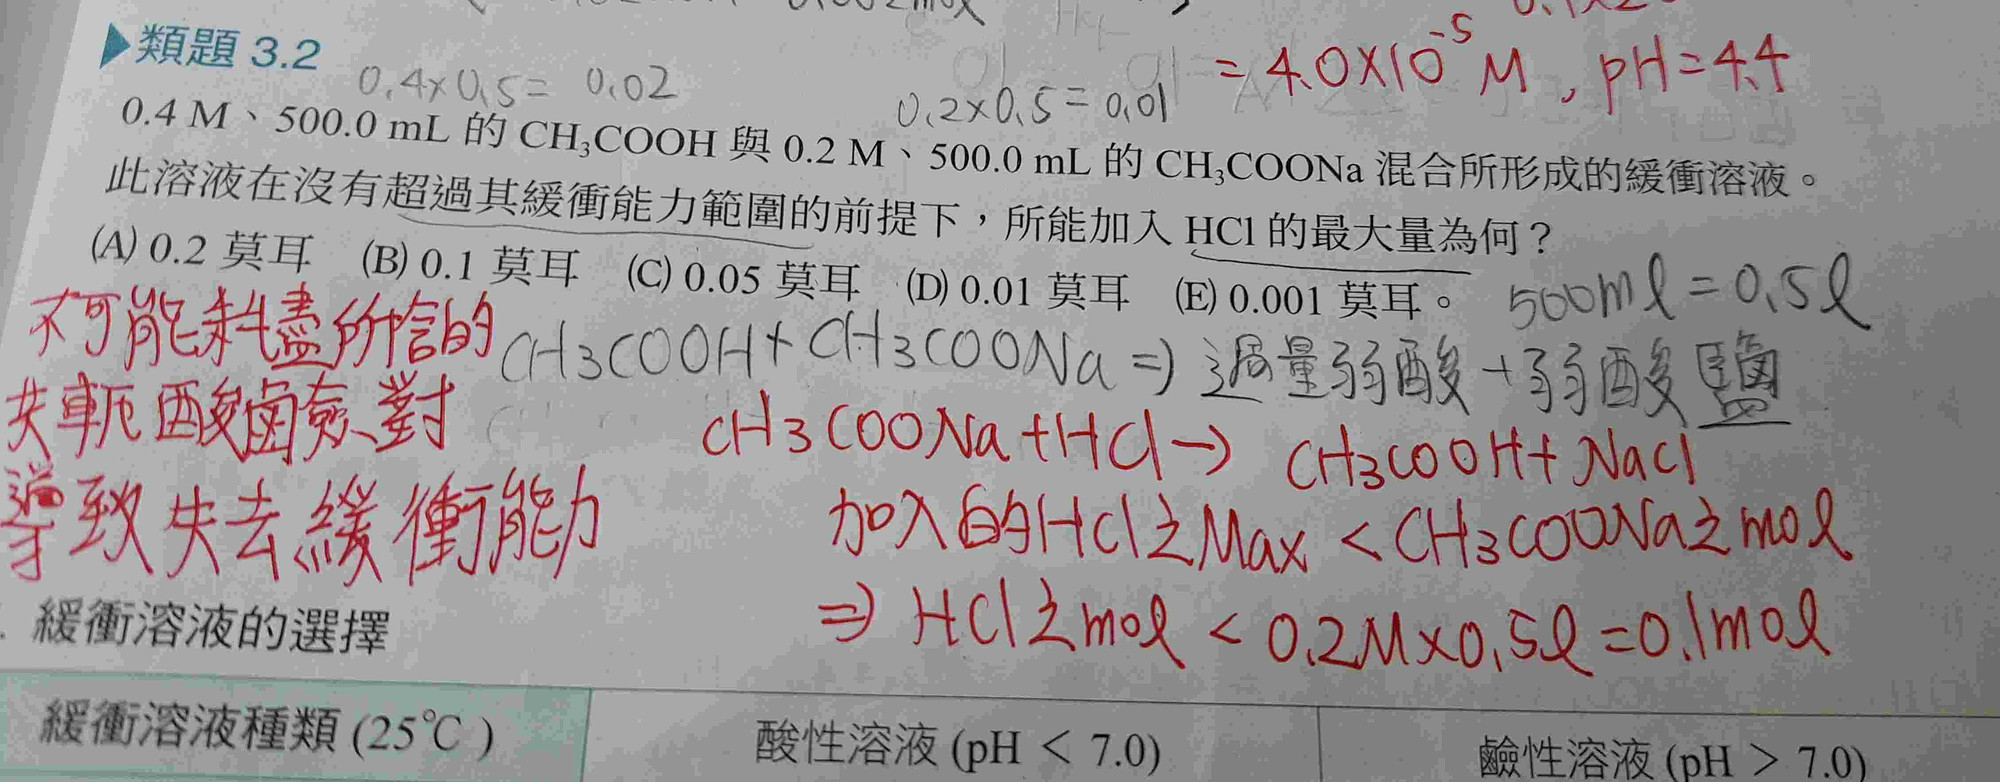 = 4.0×10⁻⁵ M, pH=4.4
▶類題 3.2
0.4×0.5= 0.02
0.2×0.5=0.01
0.4 M、500.0 mL 的 CH₃COOH 與 0.2 M、500.0 mL 的 CH₃COONa 混合所形成的緩衝溶液。
此溶液在沒有超過其緩衝能力範圍的前提下，所能加入 HCl 的最大量為何？
(A) 0.2 莫耳 (B) 0.1 莫耳 (C) 0.05 莫耳 (D) 0.01 莫耳 (E) 0.001 莫耳。
500ml=0.5l
不可能耗盡所含的
共軛酸鹼對
導致失去緩衝能力
CH3COOH+CH3COONa⇒過量弱酸+弱酸鹽
CH3COONa+HCl→ CH3COOH+NaCl
加入的HCl之Max < CH3COONa之mol
⇒ HCl之mol < 0.2M×0.5l=0.1mol
緩衝溶液的選擇
緩衝溶液種類 (25℃) 酸性溶液 (pH < 7.0) 鹼性溶液 (pH > 7.0)